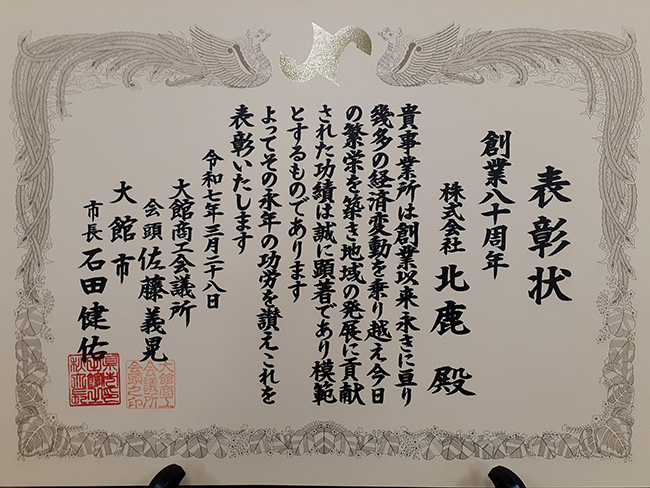 表彰状
創業八十周年
株式会社 北鹿 殿
貴事業所は創業以来永きに亘り
幾多の経済変動を乗り越え今日
の繁栄を築き地域の発展に貢献
された功績は誠に顕著であり模範
とするものであります
よってその永年の功労を讃えこれを
表彰いたします
令和七年三月二十八日
大館商工会議所
会頭 佐藤義晃
大館市
市長 石田健佑
大館商工
会議所
会頭之印